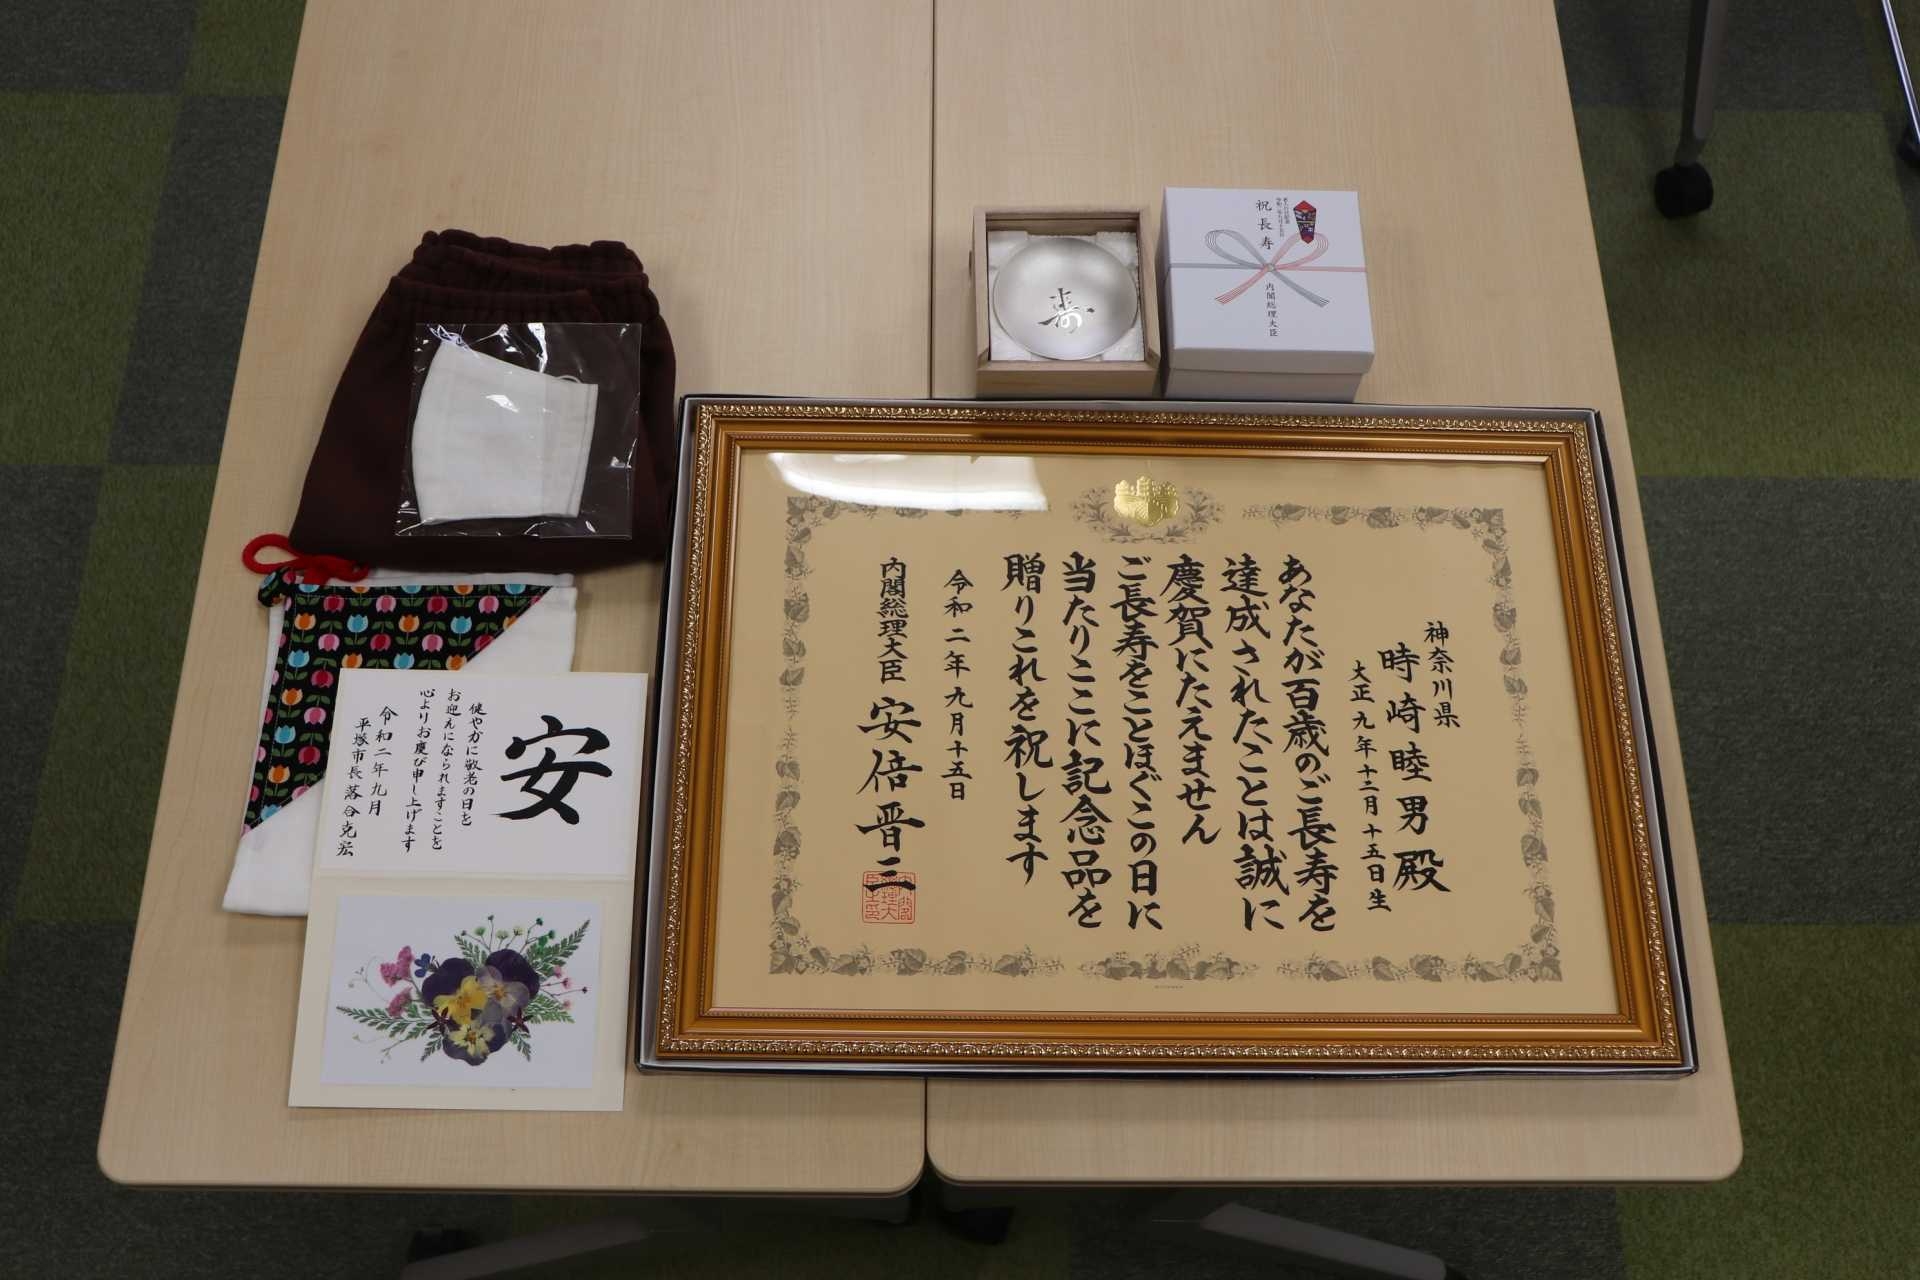 神奈川県
時崎睦男殿
大正九年十二月十五日生
あなたが百歳のご長寿を
達成されたことは誠に
慶賀にたえません
ご長寿をことほぐこの日に
当たりここに記念品を
贈りこれを祝します
令和二年九月十五日
内閣総理大臣 安倍晋三
祝長寿
内閣総理大臣
寿
安
健やかに敬老の日を
お迎えになられますことを
心よりお慶び申し上げます
令和二年九月
平塚市長 落合克宏